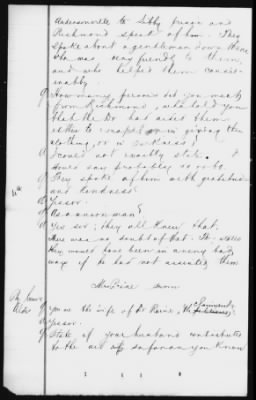 Andersonville to Libby prison and
Richmond speak of him. They
spoke about a gentleman down there
who was very friendly to them,
and who helped them consid-
erably.
Q How many persons did you meet
from Richmond, who told you
that the Dr had aided them
either to escape or in giving them
clothing, or in sickness?
A I could not exactly state. I
should say probably
Q They spoke of him with gratitude
and kindness?
A Yes sir.
Q As a union man?
A Yes sir; they all knew that.
There was no doubt of that. The
they would have been in a very bad
way if he had not assisted them
Mrs sworn
By
Q You are the wife of Dr
A Yes sir.
Q State if your husband contributed
to the aid of so far as you know